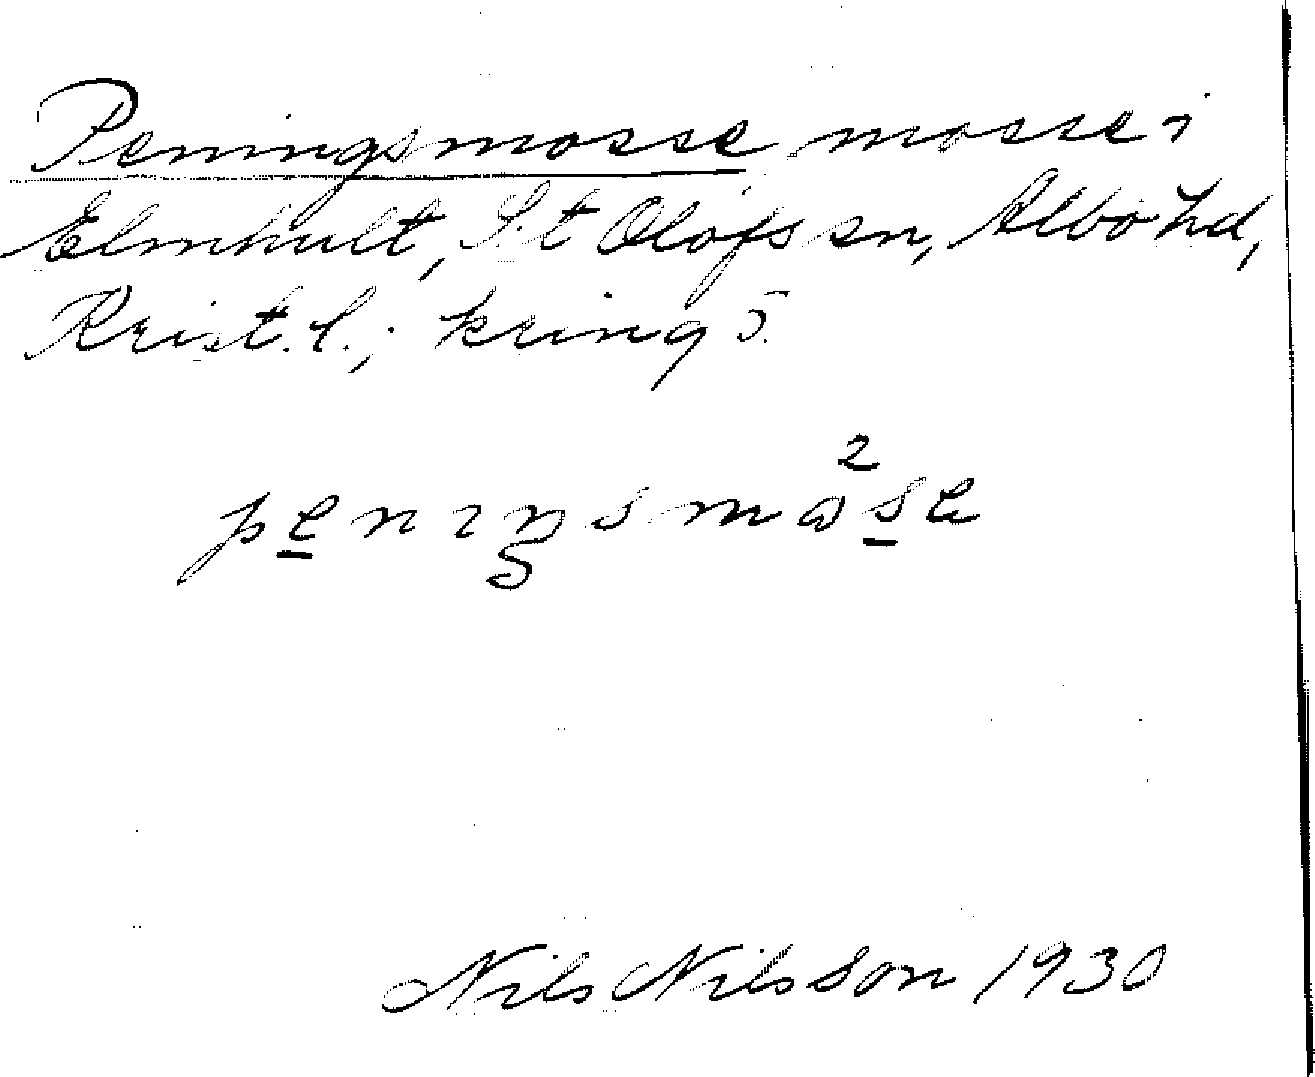 Peningsmosse mosse i
Elmhult, S:t Olofs sn, Albo hd,
Krist. l.; kring 5.
pe̲nıŋsmɷ²s̲e
Nils Nilsson 1930